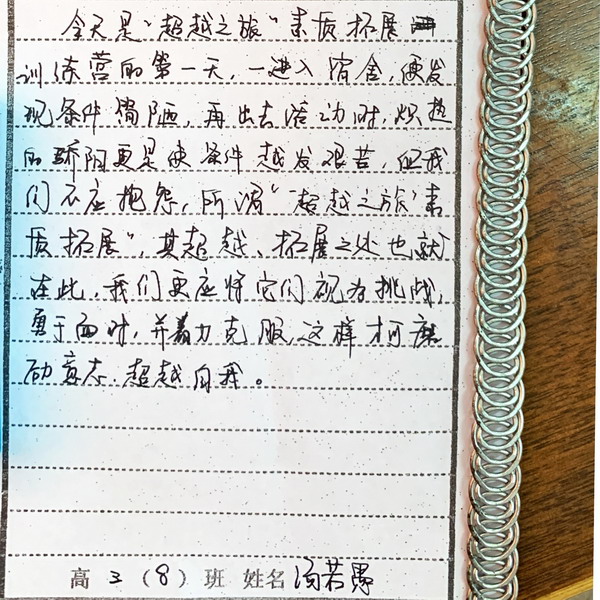 今天是“超越之旅”素质拓展
训练营的第一天,一进入宿舍,便发
现条件简陋,再出去活动时,炽热
的骄阳更是使条件越发艰苦,但我
们不应抱怨,所谓“超越之旅”素
质拓展”,其超越、拓展之处也就
在此,我们更应将它们视为挑战,
勇于面对,并着力克服,这样才可磨
励意志,超越自我。
高 3 (8) 班 姓名 汤若愚